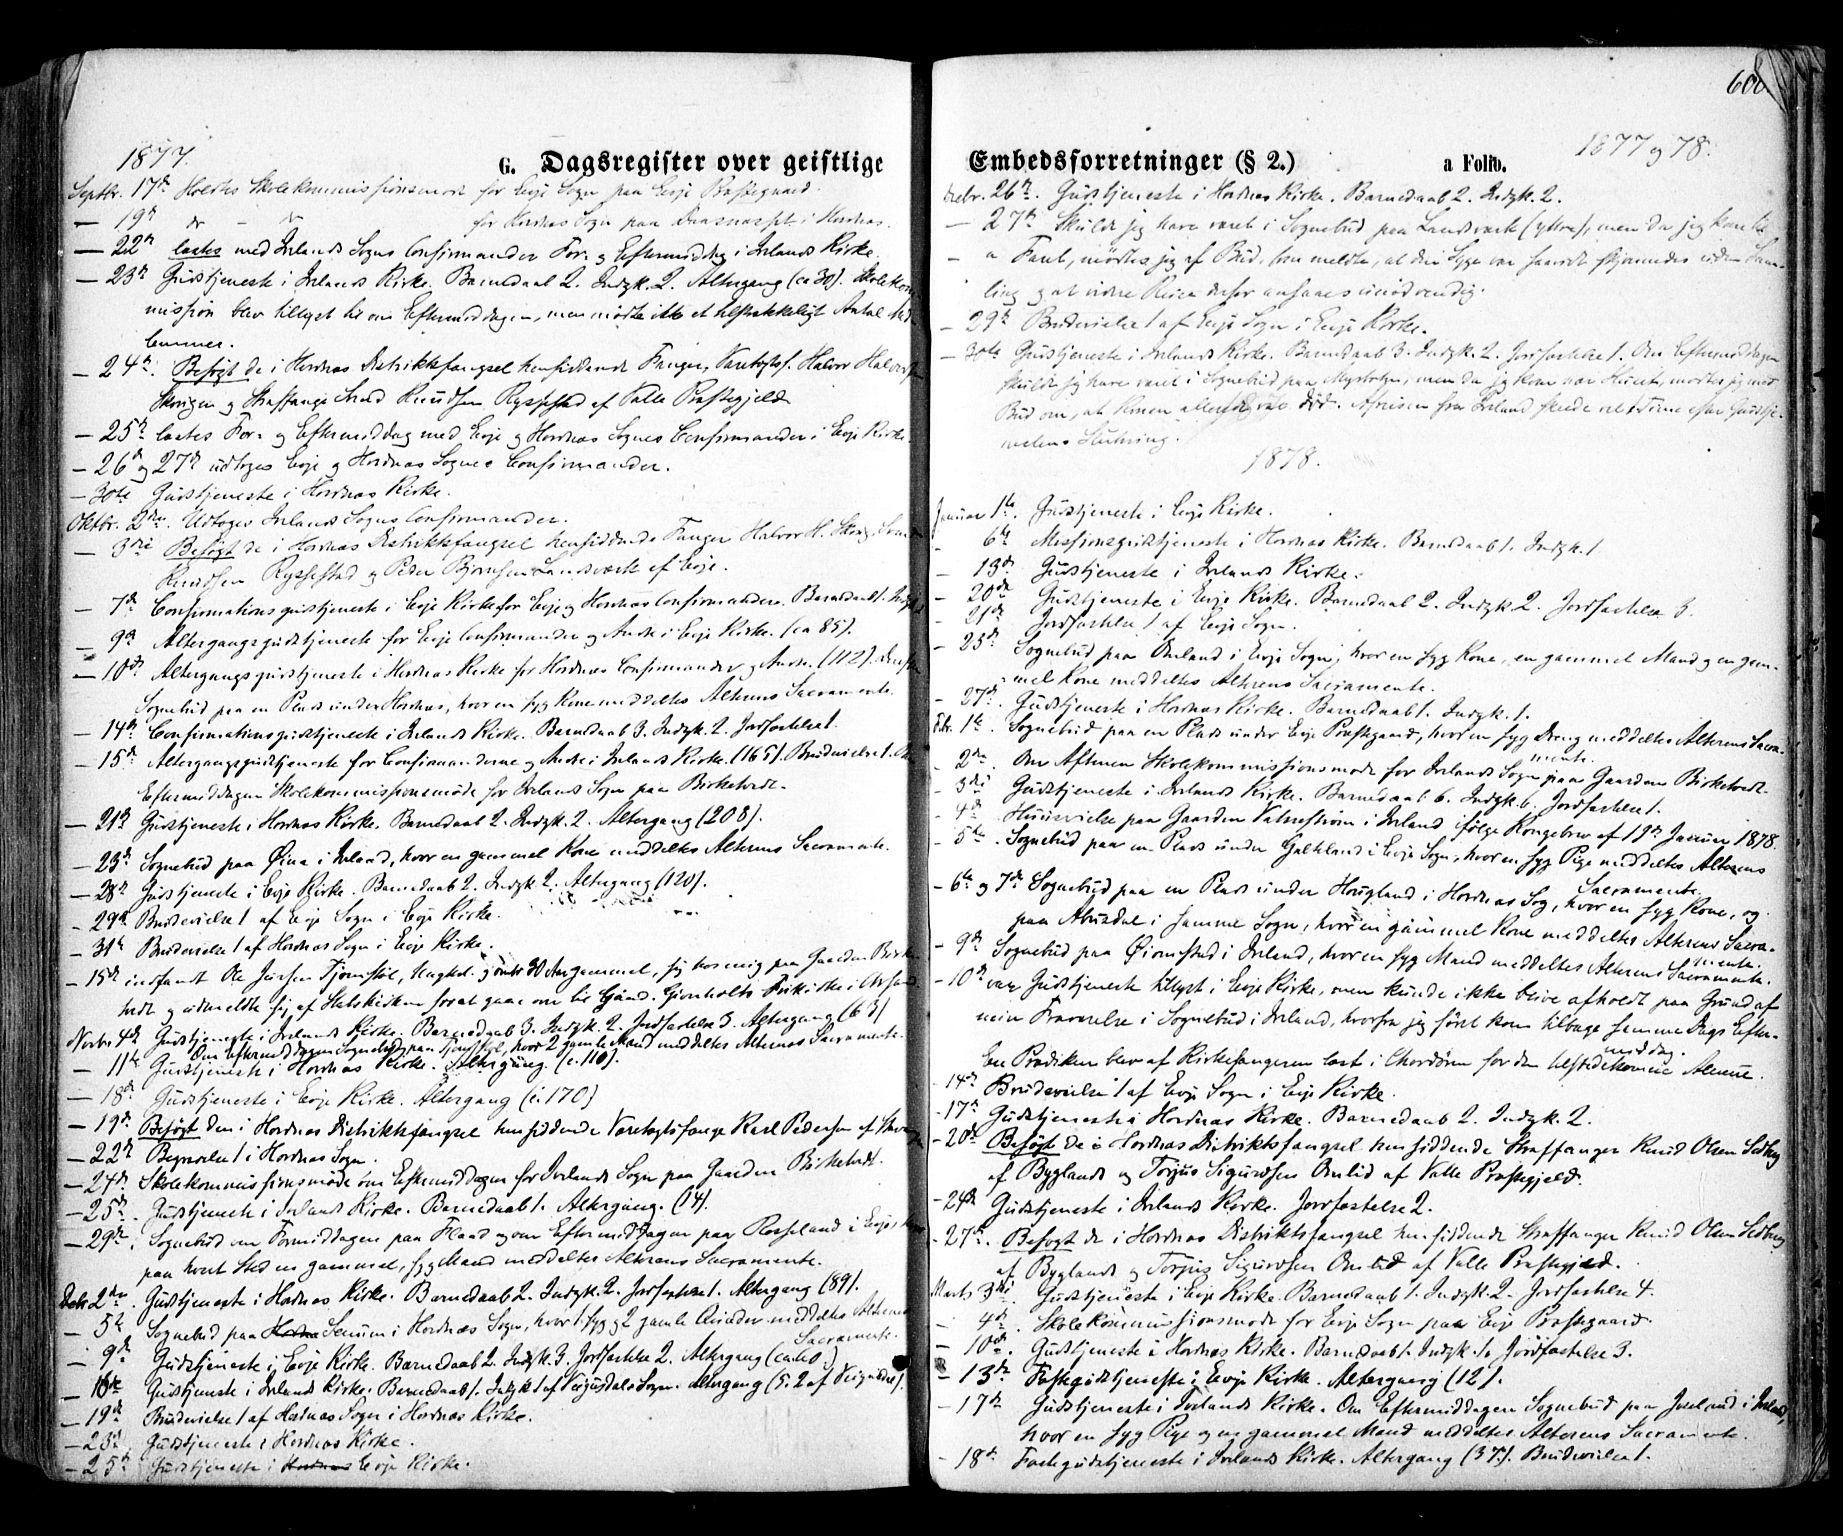 600.
1877.
G. Dagsregister over geistlige
Septbr. 17de Holdtes Skolekommissionsmøde for Evje Sogn paa Evje Præstegaard
— 19de do – do for Hordnæs Sogn paa i Hordnæs.
— 22de læstes med Ivelands Sogns Confirmander For- og Eftermiddag i Ivelands Kirke.
— 23de Gudstjeneste i Ivelands Kirke. Barnedaab 2. Indgk. 2. Altergang (ca 30). Skolekom-
mission blev tillyst til om Eftermiddagen, men mødte ikke et tilstrækkeligt Antal Med-
lemmer.
— 24de. Besøgt de i Hordnæs Distriktsfængsel hensiddende Fanger, Varetægtsf. Halvor Halvorsen
og Straffange Svend Knudsen Rysstad af Valle Præstegjeld
— 25de læstes For- og Eftermiddag med Evje og Hordnæs Sognes Confirmander i Evje Kirke.
— 26de og 27de udtoges Evje og Hordnæs Sognes Confirmander.
— 30te Gudstjeneste i Hordnæs Kirke.
Oktbr. 2den. Udtoges Ivelands Sogns Confirmander.
— 3die Besøgt de i Hordnæs Distriktsfængsel hensiddende Fanger Halvor H. Svend
Knudsen Rysstad og Peder Bjørnsen Landsværk af Evje.
— 7de Confirmationsgudstjeneste i Evje Kirke for Evje og Hordnæs Confirmander. Barnedaab 1. Indgk 1
— 9de Altergangsgudstjeneste for Evje Confirmander og Andre i Evje Kirke. (ca 85).
— 10de Altergangsgudstjeneste i Hordnæs Kirke for Hordnæs Confirmander og Andre. (112).
Sognebud paa en Plads under Hordnæs, hvor en syg Kone meddeltes Alterens Sacramente.
— 14de Confirmationsgudstjeneste i Ivelands Kirke. Barnedaab 3. Indgk. 2. Jordfæstelse 1.
— 15de Altergangsgudstjeneste for Confirmanderne og Andre i Ivelands Kirke. (165). Brudevielse 1. Om
Eftermiddagen Skolekommissionsmøde for Ivelands Sogn paa Birketvedt.
— 21de Gudstjeneste i Hordnæs Kirke. Barnedaab 2. Indgk. 2. Altergang (208).
— 23de Sognebud paa i Iveland, hvor en gammel Kone meddeltes Alterens Sacramente.
— 28de Gudstjeneste i Evje Kirke. Barnedaab 2. Indgk. 2. Altergang (120).
— 29de Brudevielse 1 af Evje Sogn i Evje Kirke.
— 31te Brudevielse 1 af Hordnæs Sogn i Evje Kirke.
— 15de indfandt Ole Jensen Ungkarl. og omtr. 30 Aar gammel, sig hos mig paa Gaarden Birke-
tvedt og udmeldte sig af Statskirken forat gaae over til Frikirke i
Novbr. 4de Gudstjeneste i Ivelands Kirke. Barnedaab 3. Indgk. 2. Jordfæstelse 3. Altergang (63)
Om Eftermiddagen Sognebud paa hvor 2 gamle Mænd meddeltes Alterens Sacramente.
— 11te Gudstjeneste i Hordnæs Kirke. Altergang. (c. 110).
— 18de Gudstjeneste i Evje Kirke. Altergang (c. 170)
— 19de Besøgt den i Hordnæs Distriktsfængsel hensiddende Varetægtsfange Karl Pedersen af
— 22de Begravelse 1 i Hordnæs Sogn.
— 24de Skolekommissionsmøde om Eftermiddagen for Ivelands Sogn paa Gaarden Birketvedt.
— 25de. Gudstjeneste i Ivelands Kirke. Barnedaab 1. Altergang. (14).
— 29de. Sognebud om Formiddagen paa Flaad og om Eftermiddagen paa Rosseland i Evje, hvor
paa hvert Sted en gammel, syg Mand meddeltes Alterens Sacramente.
Decbr. 2den. Gudstjeneste i Hordnæs Kirke. Barnedaab 2. Indgk. 2. Jordfæstelse 1. Altergang (89).
— 5te Sognebud paa Senum i Hordnæs Sogn, hvor 1 syg og 2 gamle Qvinder meddeltes Alterens
Sacramente.
— 9de Gudstjeneste i Evje Kirke. Barnedaab 2. Indgk 3. Jordfæstelse 2. Altergang (ca 60.)
— 16de Gudstjeneste i Ivelands Kirke. Barnedaab 1. Indgk 1 af Veigusdals Sogn. Altergang (5. 2 af Veigusdal).
— 19de Brudevielse 1 af Hordnæs Sogn i Hordnæs Kirke.
— 23de Gudstjeneste i Hordnæs Kirke.
— 25de Gudstjeneste i Hordnæs Evje Kirke.
Embedsforretninger (§ 2.) a Folio.
1877 og 78.
Decbr. 26de. Gudstjeneste i Hordnæs Kirke. Barnedaab 2. Indgk. 2.
— 27de Skulde jeg have været i Sognebud paa Landsværk (yttre), men da jeg kom til
Faret, mødtes jeg af Bud, som meldte, at den Syge var saavidt skjønnedes uden Sam-
ling og at videre Reise derfor ansaaes unødvendig.
— 29de Brudevielse 1 af Evje Sogn i Evje Kirke.
— 30te Gudstjeneste i Ivelands Kirke. Barnedaab 3. Indgk. 2. Jordfæstelse 1. Om Eftermiddagen
skulde jeg have været i Sognebud paa men da jeg kom nær Huset, mødtes jeg med
Bud om, at Konen allerede var død. Afreisen fra Iveland skede efter Gudstje-
nestens Slutning.
1878.
Januar 1te. Gudstjeneste i Evje Kirke.
— 6te Missionsgudstjeneste i Hordnæs Kirke. Barnedaab 1. Indgk. 1
— 13de Gudstjeneste i Ivelands Kirke.
— 20de Gudstjeneste i Evje Kirke. Barnedaab 2. Indgk. 2. Jordfæstelse 3.
— 21de Jordfæstelse 1 af Evje Sogn.
— 25de Sognebud paa Omland i Evje Sogn, hvor en syg Kone, en gammel Mand og en gam-
mel Kone meddeltes Alterens Sacramente.
— 27de. Gudstjeneste i Hordnæs Kirke. Barnedaab 1. Indgk. 1.
Febr. 1te. Sognebud paa en Plads under Evje Præstegaard, hvor en syg Dreng meddeltes Alterens Sacra-
mente.
— 2den. Om Aftenen Skolekommissionsmøde for Ivelands Sogn paa Gaarden Birketvedt.
— 3die Gudstjeneste i Ivelands Kirke. Barnedaab 6. Indgk. 6. Jordfæstelse 1.
— 4de Huusvielse paa Gaarden Vatnestrøm i Iveland ifølge Kongebrev af 19de Januar 1878.
— 5te. Sognebud paa en Plads under Galteland i Evje Sogn, hvor en syg Pige meddeltes Alterens
Sacramente.
— 6te og 7de Sognebud paa en Plads under Hougland i Hordnæs Sogn, hvor en syg Kone, og
paa Abusdal i samme Sogn, hvor en gammel Kone meddeltes Alterens Sacra-
mente.
— 9de Sognebud paa i Iveland, hvor en syg Mand meddeltes Alterens Sacramente.
— 10de var Gudstjeneste tillyst i Evje Kirke, men kunde ikke blive afholdt paa Grund af
min Fraværelse i Sognebud i Iveland, hvorfra jeg først kom tilbage samme Dags Efter-
middag.
En Prædiken blev af Kirkesangeren læst i Chordøren for den tilstedekomne Almue.
— 14de Brudevielse 1 af Evje Sogn i Evje Kirke.
— 17de Gudstjeneste i Hordnæs Kirke. Barnedaab 2. Indgk. 2.
— 20de Besøgt de i Hordnæs Distriktsfængsel hensiddende Straffanger Knud Olsen Sedberg
af Bygland og Torjus Sigurdsen Omlid af Valle Præstegjeld.
— 24de Gudstjeneste i Ivelands Kirke. Jordfæstelse 2.
— 27de. Besøgt de i Hordnæs Distriktsfængsel hensiddende Straffanger Knud Olsen Sedberg
af Bygland og Torjus Sigurdsen Omlid af Valle Præstegjeld.
Marts 3die Gudstjeneste i Evje Kirke. Barnedaab 1. Indgk. 2. Jordfæstelse 4.
— 4de. Skolekommissionsmøde for Evje Sogn paa Evje Præstegaard.
— 10de. Gudstjeneste i Hordnæs Kirke. Barnedaab 1. Indgk. 1. Jordfæstelse 3.
— 13de Fastegudstjeneste i Evje Kirke. Altergang (12).
— 17de Gudstjeneste i Ivelands Kirke. Om Eftermiddagen Sognebud paa i Iveland,
hvor en syg Pige og en gammel Mand meddeltes Alterens Sacramente.
— 18de Fastegudstjeneste i Ivelands Kirke. Altergang (37). Brudevielse 1.